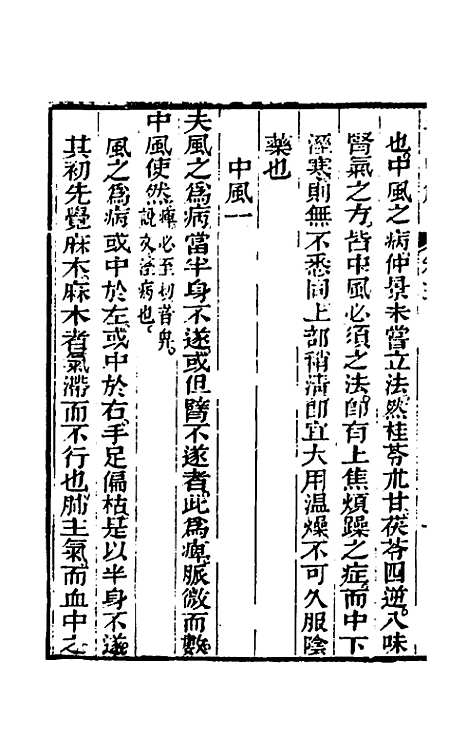 也中風之病仲景未嘗立法然桂苓朮甘茯苓四逆八味
腎氣之方皆中風必須之法卽有上焦煩躁之症而中下
溼寒則無不悉同上部稍清卽宜大用温燥不可久服陰
藥也
中風一
夫風之爲病當半身不遂或但臂不遂者此爲痹脈微而數
中風使然痹必至切音畀
說文溼病也
風之爲病或中於左或中於右手足偏枯是以半身不遂
其初先覺麻木麻木者氣滯而不行也肺主氣而血中之